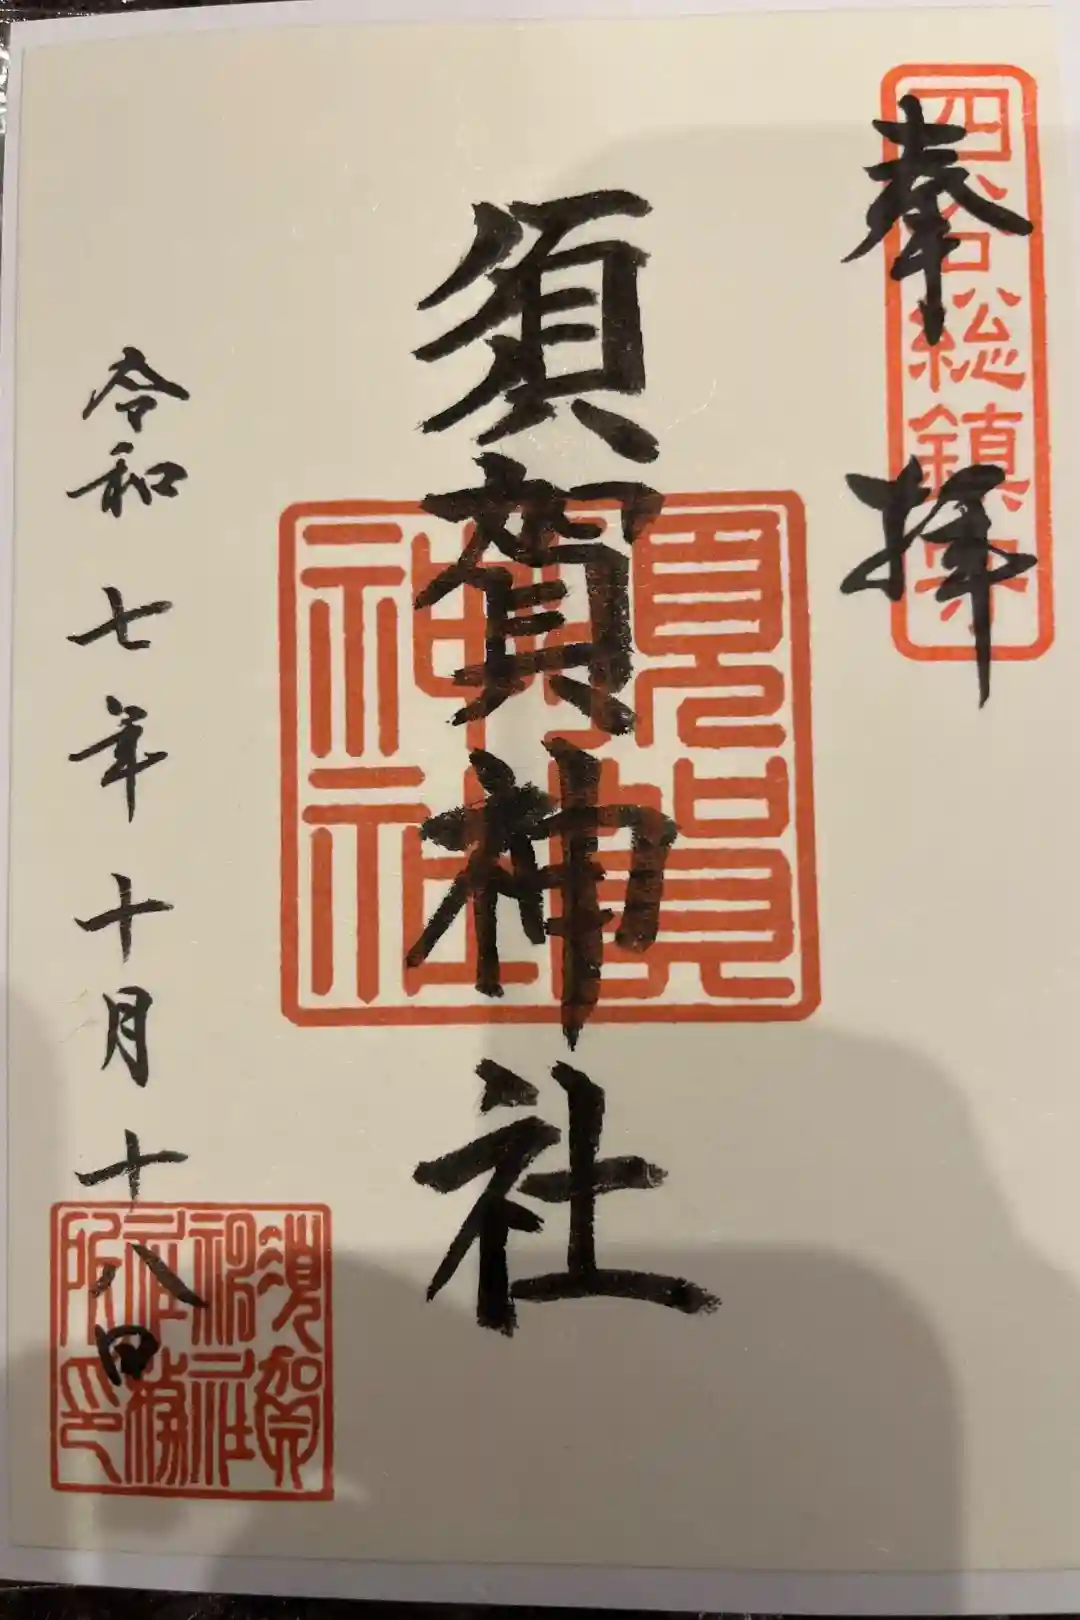 四谷総鎮守
奉拝
須賀神社
須賀
神社
令和七年十月十八日
須賀
神社
社務
所印